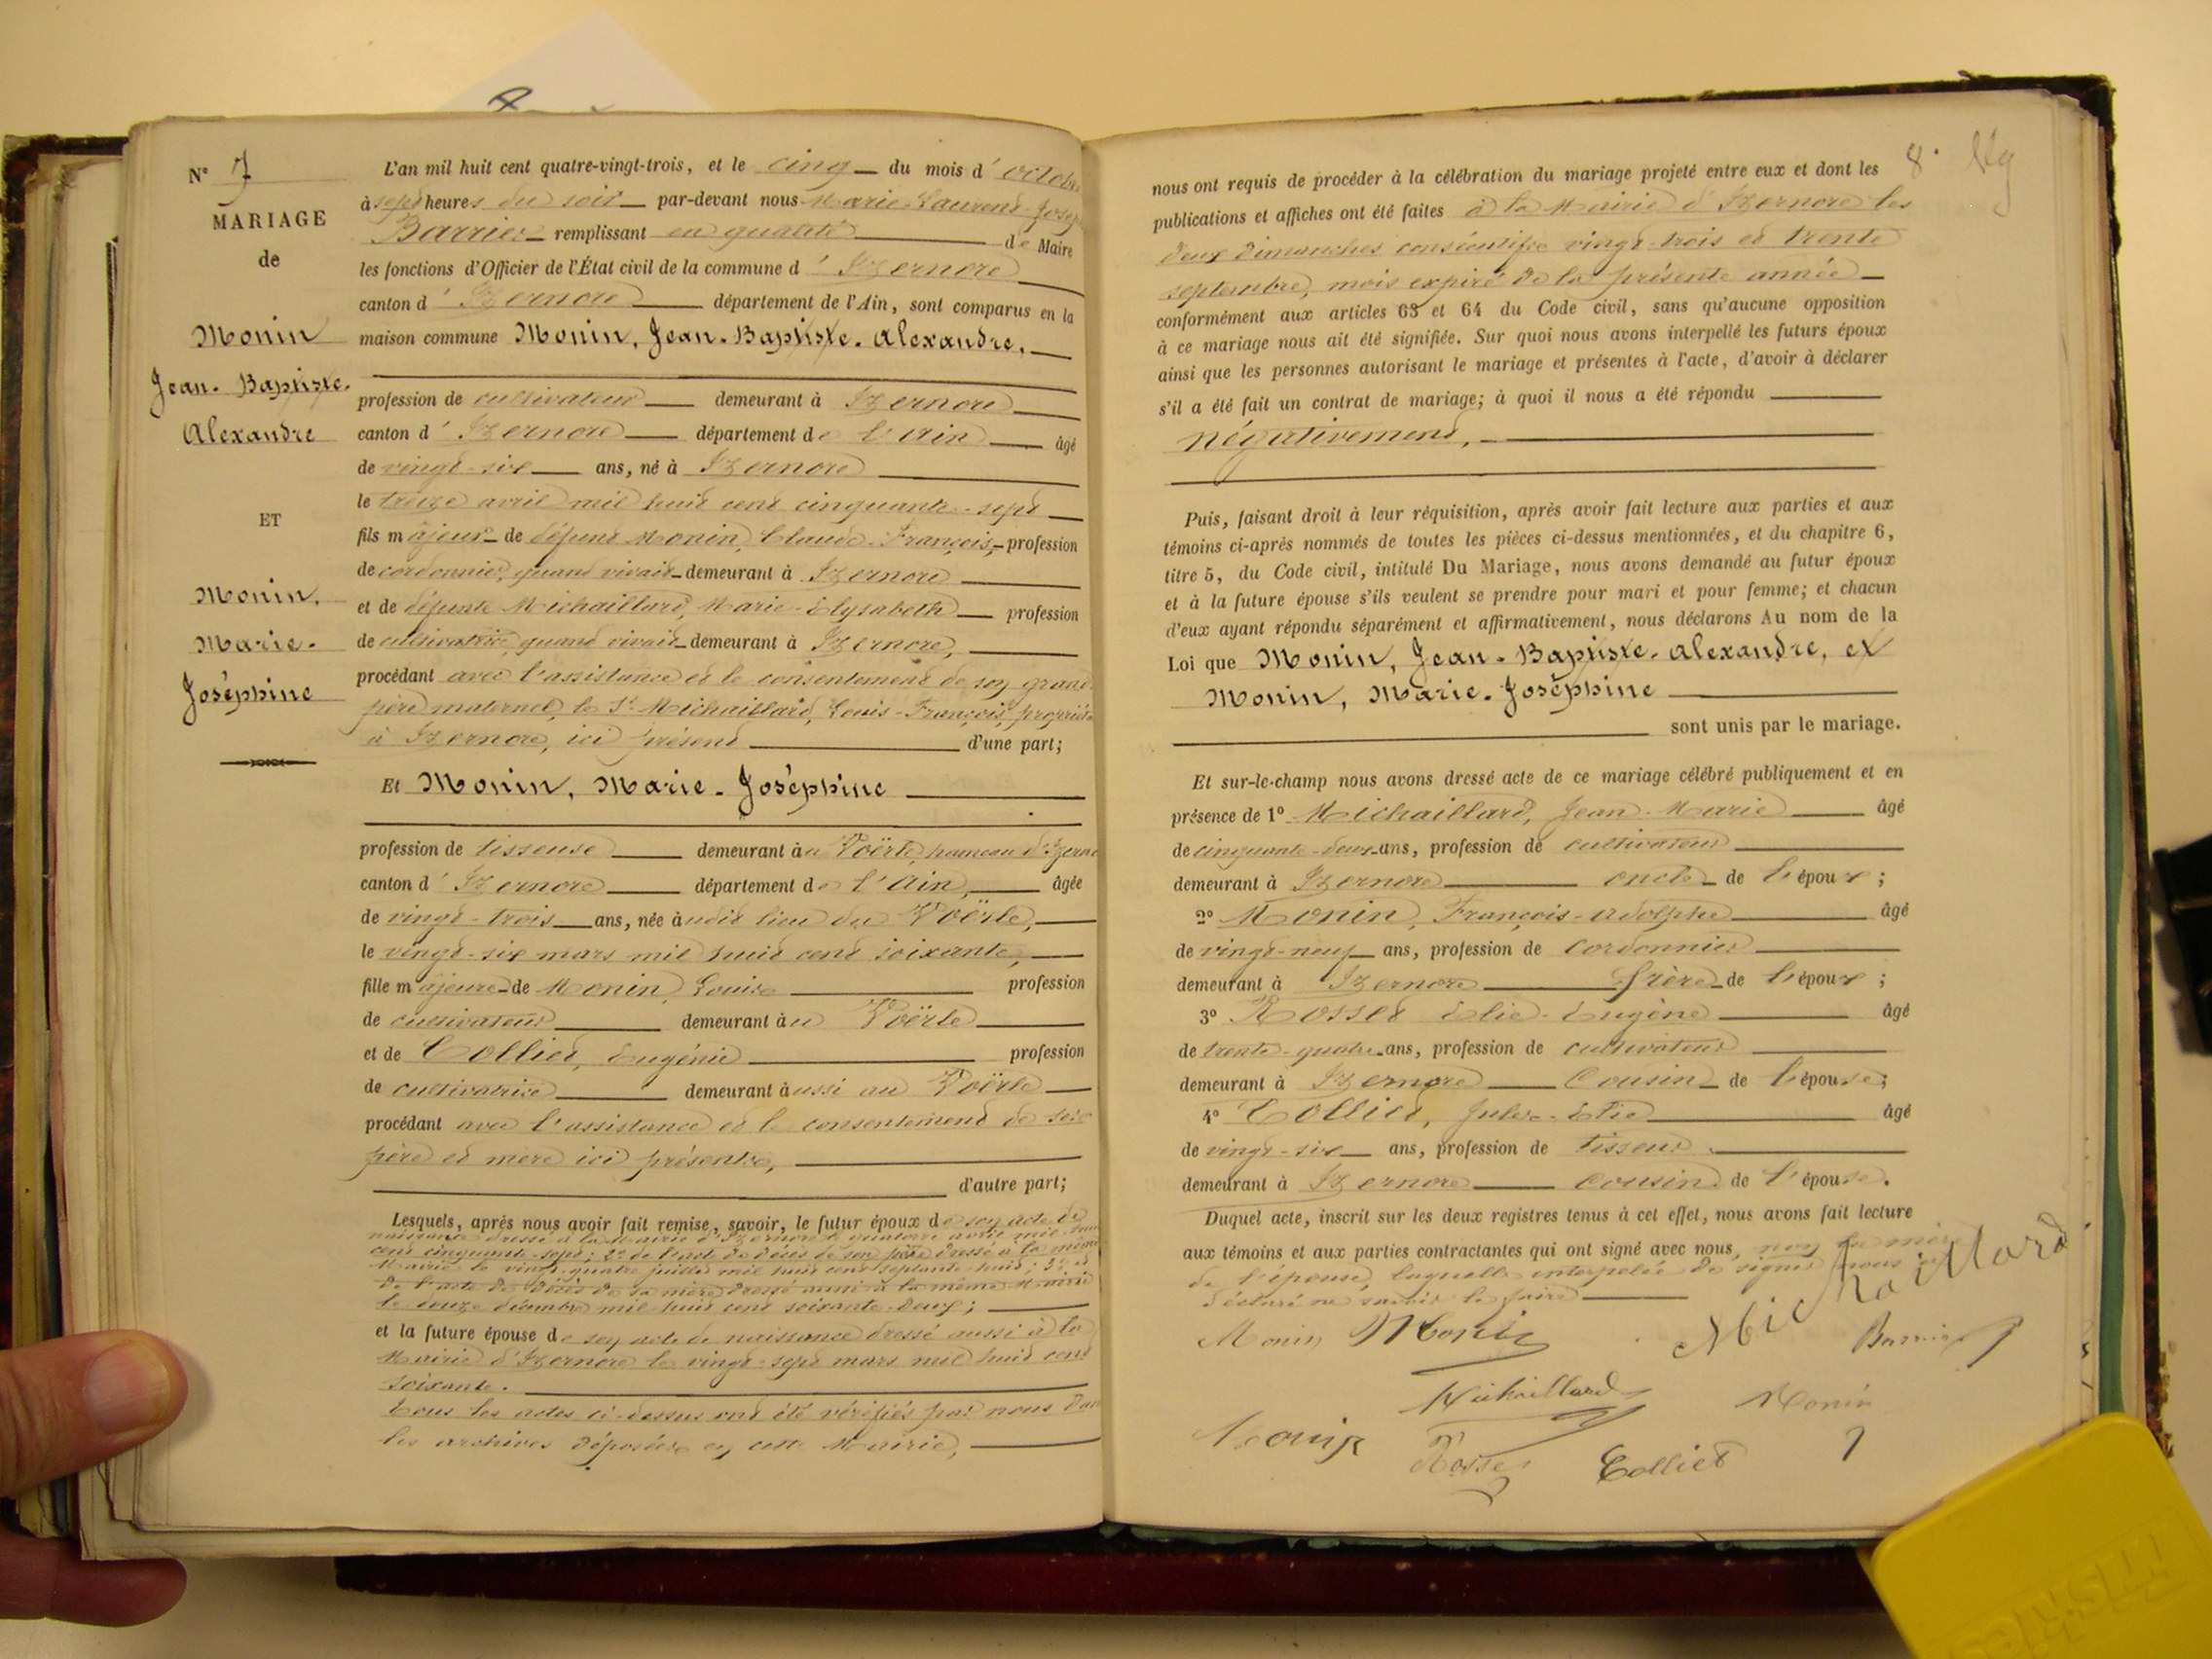 N° 7
MARIAGE
de
Monin
Jean-Baptiste-
Alexandre
ET
Monin,
Marie-
Joséphine
L'an mil huit cent quatre-vingt-trois, et le cinq du mois d'octobre
à sept heures du soir par-devant nous Marie-Laurent-Joseph
Barrier remplissant en qualité de Maire
les fonctions d'Officier de l'État civil de la commune d'Izernore
canton d'Izernore département de l'Ain, sont comparus en la
maison commune Monin, Jean-Baptiste-Alexandre,
profession de cultivateur demeurant à Izernore
canton d'Izernore département de l'Ain âgé
de vingt-six ans, né à Izernore
le treize avril mil huit cent cinquante-sept
fils majeur de défunt Monin, Claude-François, profession
de cordonnier, quand vivait demeurant à Izernore
et de défunte Michaillard, Marie-Elysabeth profession
de cultivatrice, quand vivait demeurant à Izernore,
procédant avec l'assistance et le consentement de son grand
père maternel, le Sr Michaillard, Louis-François, propriét
à Izernore, ici présent d'une part;
Et Monin, Marie-Joséphine
profession de tisseuse demeurant au Voërle, hameau d'Izerno
canton d'Izernore département de l'Ain, âgée
de vingt-trois ans, née audit lieu du Voërle,
le vingt-six mars mil huit cent soixante,
fille majeure de Monin, Louis profession
de cultivateur demeurant au Voërle
et de Colliet, Eugénie profession
de cultivatrice demeurant aussi au Voërle
procédant avec l'assistance et le consentement de ses
père et mère ici présents,
d'autre part;
Lesquels, après nous avoir fait remise, savoir, le futur époux de son acte de
naissance dressé à la Mairie d'Izernore le quatorze avril mil huit
cent cinquante-sept; 2° de l'acte de décès de son père dressé à la même
Mairie le vingt-quatre juillet mil huit cent septante-huit; 3° et
de l'acte de décès de sa mère dressé aussi à la même Mairie
le douze décembre mil huit cent soixante-deux;
et la future épouse de son acte de naissance dressé aussi à la
Mairie d'Izernore le vingt-sept mars mil huit cent
soixante.
Tous les actes ci-dessus ont été vérifiés par nous dans
les archives déposées en cette Mairie,
8.
nous ont requis de procéder à la célébration du mariage projeté entre eux et dont les
publications et affiches ont été faites à la Mairie d'Izernore les
deux dimanches consécutifs vingt-trois et trente
septembre, mois expiré de la présente année
conformément aux articles 63 et 64 du Code civil, sans qu'aucune opposition
à ce mariage nous ait été signifiée. Sur quoi nous avons interpellé les futurs époux
ainsi que les personnes autorisant le mariage et présentes à l'acte, d'avoir à déclarer
s'il a été fait un contrat de mariage; à quoi il nous a été répondu
négativement,
Puis, faisant droit à leur réquisition, après avoir fait lecture aux parties et aux
témoins ci-après nommés de toutes les pièces ci-dessus mentionnées, et du chapitre 6,
titre 5, du Code civil, intitulé Du Mariage, nous avons demandé au futur époux
et à la future épouse s'ils veulent se prendre pour mari et pour femme; et chacun
d'eux ayant répondu séparément et affirmativement, nous déclarons Au nom de la
Loi que Monin, Jean-Baptiste-Alexandre, et
Monin, Marie-Joséphine
sont unis par le mariage.
Et sur-le-champ nous avons dressé acte de ce mariage célébré publiquement et en
présence de 1° Michaillard, Jean-Marie âgé
de cinquante-deux ans, profession de cultivateur
demeurant à Izernore oncle de l'époux;
2° Monin, François-Adolphe âgé
de vingt-neuf ans, profession de cordonnier
demeurant à Izernore frère de l'époux;
3° Rosset Elie-Eugène âgé
de trente-quatre ans, profession de cultivateur
demeurant à Izernore Cousin de l'épouse;
4° Colliet, Jules-Elie âgé
de vingt-six ans, profession de tisseur
demeurant à Izernore cousin de l'épouse.
Duquel acte, inscrit sur les deux registres tenus à cet effet, nous avons fait lecture
aux témoins et aux parties contractantes qui ont signé avec nous, non la mère
de l'épouse, laquelle interpelée de signer nous a
déclaré ne savoir le faire
Monin Monin Michaillard Barrier
Michaillard Monin
Rosset Colliet